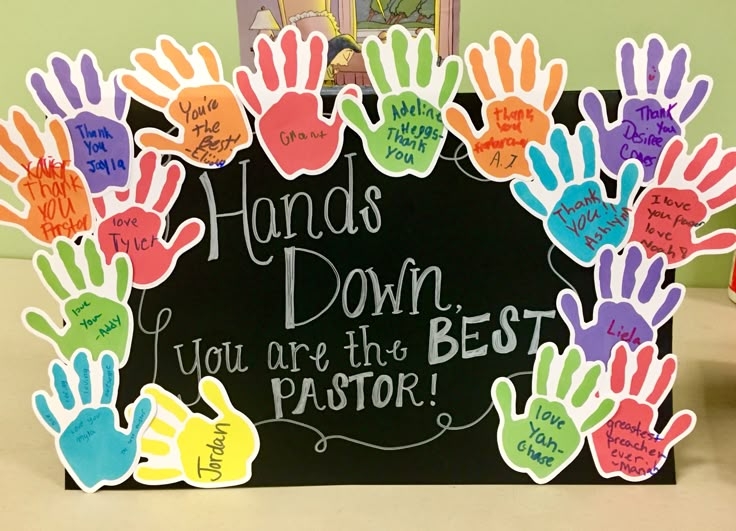 Hands
Down,
You are the BEST
PASTOR!
Thank
You
Jayla
You're
the
Best-
Grant
Adeline
Heggs-
Thank
you
thank
you
A.J.
Thank you
Desiree
Thank
You
Ashlyn
I love
you
love
Noah
Liela
greatest
preacher
ever
love
Yan-
Chase
Jordan
Myla
love
You
-Addy
love
Tyler
thank
you